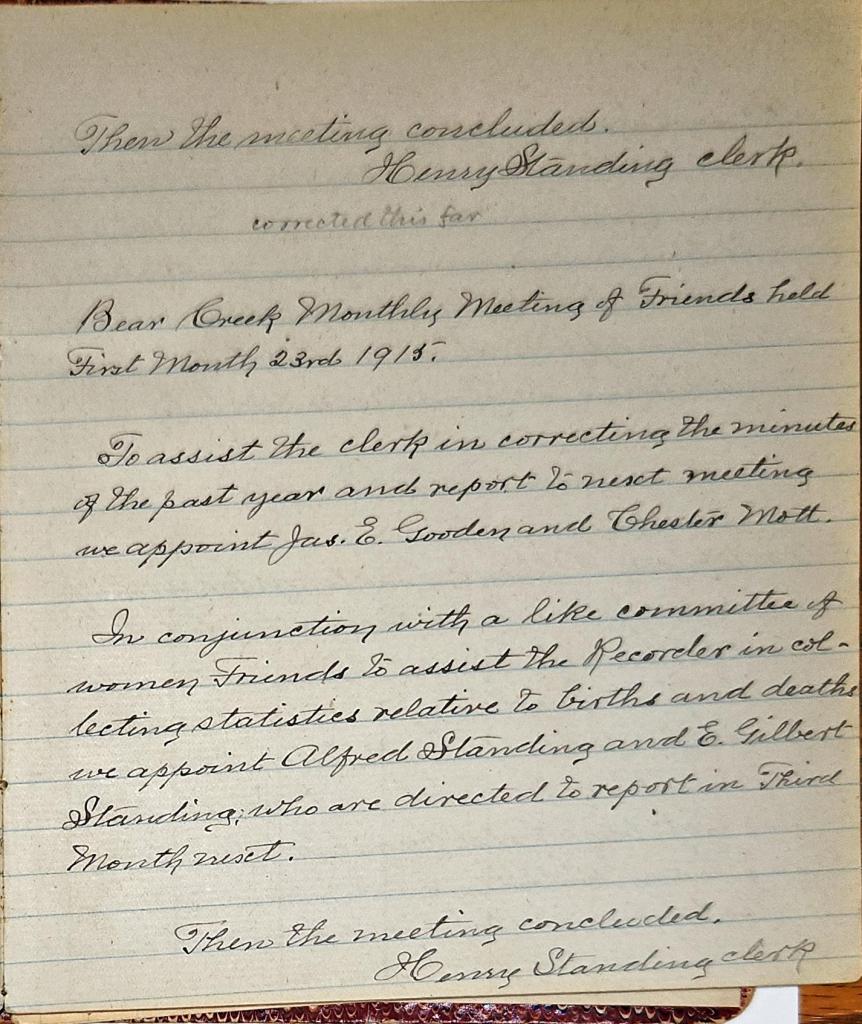 Then the meeting concluded.
Henry Standing clerk.
corrected this far
Bear Creek Monthly Meeting of Friends held
First Month 23rd 1915.
To assist the clerk in correcting the minutes
of the past year and report to next meeting
we appoint Jas. E. Gooden and Chester Mott.
In conjunction with a like committee of
women Friends to assist the Recorder in col-
lecting statistics relative to births and deaths
we appoint Alfred Standing and E. Gilbert
Standing, who are directed to report in Third
Month next.
Then the meeting concluded.
Henry Standing clerk